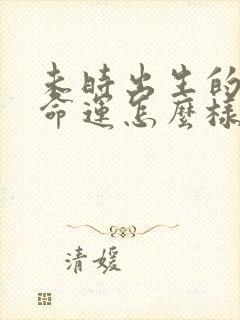 未時出生的
命運怎麼樣
清媛